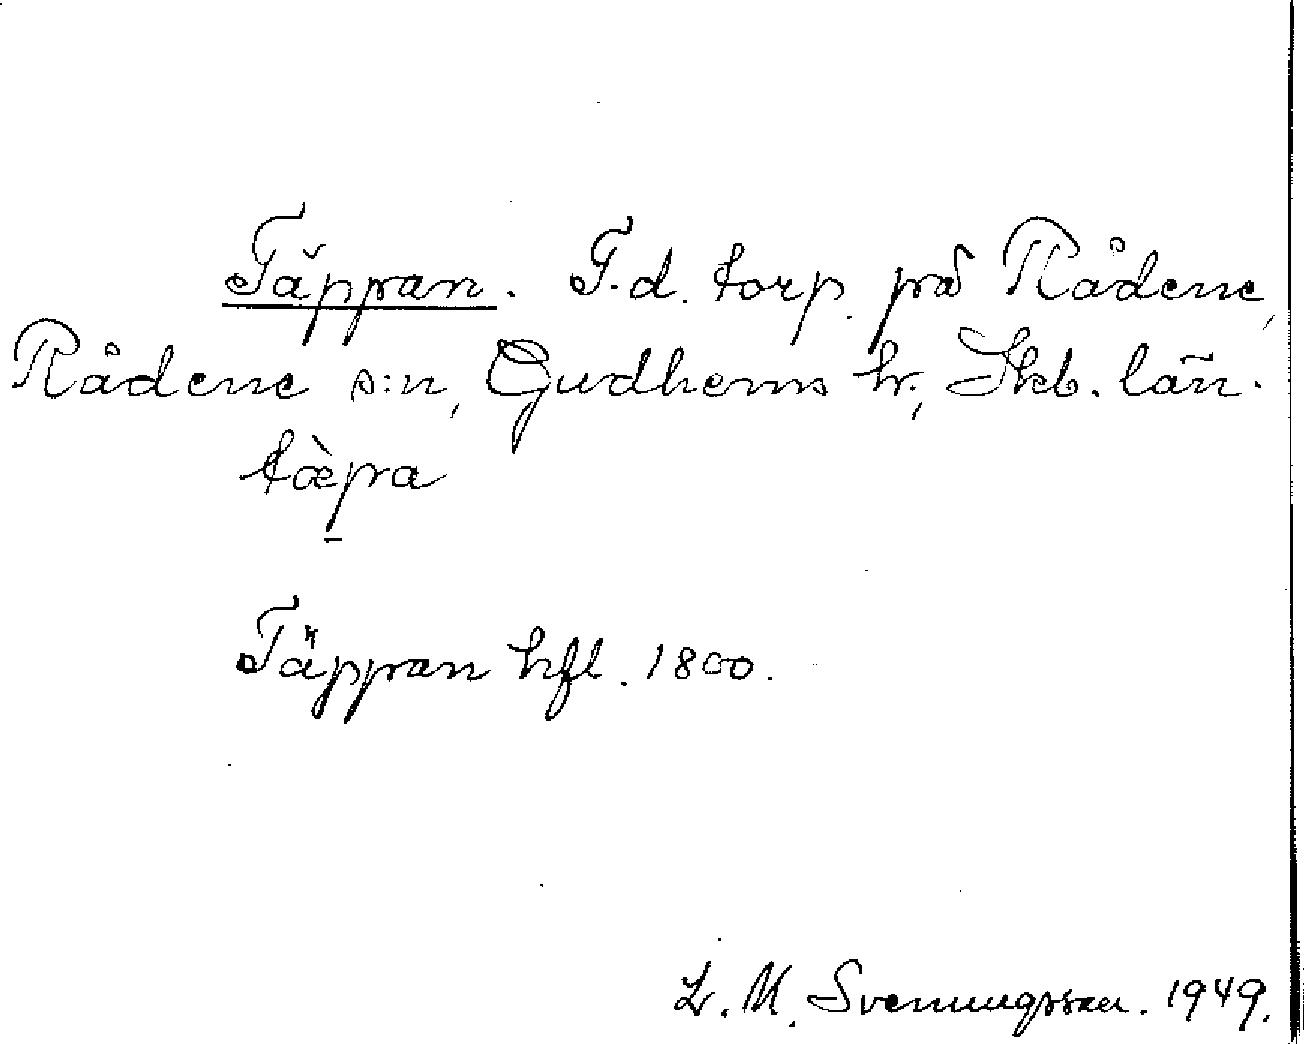 Täppan. F.d. torp på Rådene,
Rådene s:n, Gudhems hr, Skb. län.
tæ̀p̠a
Täppan hfl. 1800.
L. M. Svenungsson. 1949.